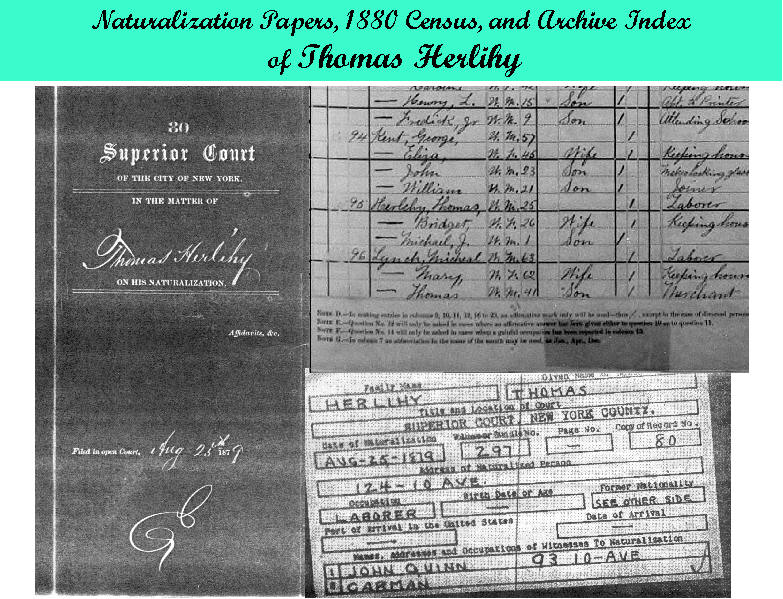 Naturalization Papers, 1880 Census, and Archive Index
of Thomas Herlihy
80
Superior Court
OF THE CITY OF NEW YORK.
IN THE MATTER OF
Thomas Herlihy
ON HIS NATURALIZATION.
Affidavits, &c.
Filed in open Court, Aug 25th 1879
— Henry, L. W. M. 15 Son 1 Apt. to Printer
— Fredick, Jr W. M. 9 Son 1 Attending School
94 Kent, George, W. M. 57 1
— Eliza, W. F. 45 Wife 1 Keeping hous
— John W. M. 23 Son 1
— William W. M. 21 Son 1 Joiner
95 Herlehy, Thomas, W. M. 25 1 Laborer
— Bridget, W. F. 26 Wife 1 Keeping hous
— Michael, J. W. M. 1 Son 1
96 Lynch, Micheal W. M. 63 1 Laborer
— Mary, W. F. 62 Wife 1 Keeping hous
— Thomas W. M. 41 Son 1 Merchant
NOTE D.—In making entries in columns 9, 10, 11, 12, 16 to 23, an affirmative mark only will be used—thus /, except in the case of divorced person
NOTE E.—Question No. 12 will only be asked in cases where an affirmative answer has been given either to question 10 or to question 11.
NOTE F.—Question No. 14 will only be asked in cases when a gainful occupation has been reported in column 13.
NOTE G.—In column 7 an abbreviation in the name of the month may be used, as Jan., Apr., Dec.
Family Name Given Name
HERLIHY THOMAS
Title and Location of Court
SUPERIOR COURT, NEW YORK COUNTY.
Date of Naturalization Volume or Bundle No. Page No. Copy of Record No.
AUG-25-1879 297 — 80
Address of Naturalized Person
124-10 AVE.
Occupation Birth Date or Age Former Nationality
LABORER — SEE OTHER SIDE
Port of Arrival in the United States Date of Arrival
— —
Names, Addresses and Occupations of Witnesses To Naturalization
1 JOHN QUINN 93 10-AVE
2 CARMAN